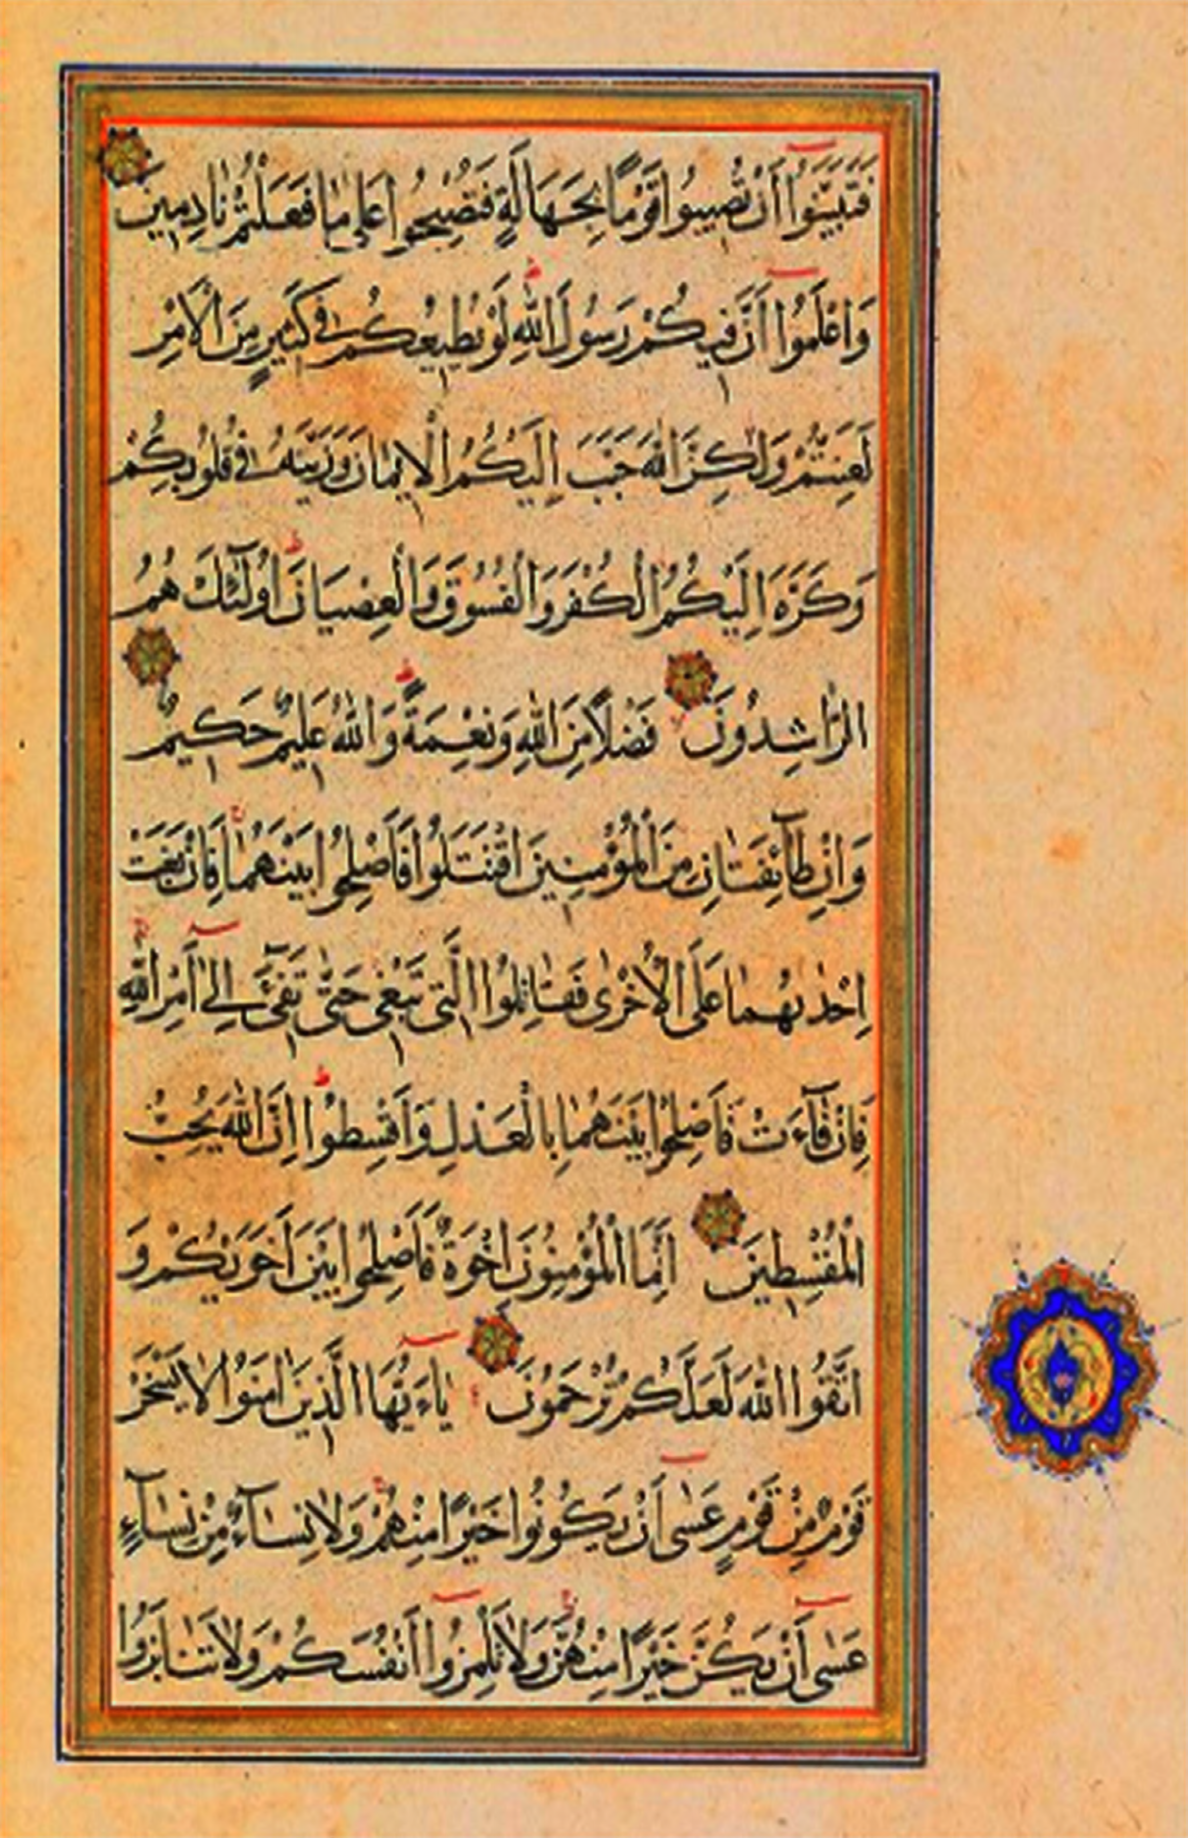 فَتَبَيَّنُوا أَنْ تُصِيبُوا قَوْمًا بِجَهَالَةٍ فَتُصْبِحُوا عَلَى مَا فَعَلْتُمْ نَادِمِينَ
وَاعْلَمُوا أَنَّ فِيكُمْ رَسُولَ اللَّهِ لَوْ يُطِيعُكُمْ فِي كَثِيرٍ مِنَ الْأَمْرِ
لَعَنِتُّمْ وَلَكِنَّ اللَّهَ حَبَّبَ إِلَيْكُمُ الْإِيمَانَ وَزَيَّنَهُ فِي قُلُوبِكُمْ
وَكَرَّهَ إِلَيْكُمُ الْكُفْرَ وَالْفُسُوقَ وَالْعِصْيَانَ أُولَٰٓئِكَ هُمُ
الرَّاشِدُونَ فَضْلًا مِنَ اللَّهِ وَنِعْمَةً وَاللَّهُ عَلِيمٌ حَكِيمٌ
وَإِنْ طَآئِفَتَانِ مِنَ الْمُؤْمِنِينَ اقْتَتَلُوا فَأَصْلِحُوا بَيْنَهُمَا فَإِنْ بَغَتْ
إِحْدٰيهُمَا عَلَى الْأُخْرَى فَقَاتِلُوا الَّتِي تَبْغِي حَتَّى تَفِيٓءَ إِلَى أَمْرِ اللَّهِ
فَإِنْ فَآءَتْ فَأَصْلِحُوا بَيْنَهُمَا بِالْعَدْلِ وَأَقْسِطُوا إِنَّ اللَّهَ يُحِبُّ
الْمُقْسِطِينَ إِنَّمَا الْمُؤْمِنُونَ إِخْوَةٌ فَأَصْلِحُوا بَيْنَ أَخَوَيْكُمْ وَ
اتَّقُوا اللَّهَ لَعَلَّكُمْ تُرْحَمُونَ يَاءَيُّهَا الَّذِينَ اٰمَنُوا لَا يَسْخَرْ
قَوْمٌ مِنْ قَوْمٍ عَسَى أَنْ يَكُونُوا خَيْرًا مِنْهُمْ وَلَا نِسَآءٌ مِنْ نِسَآءٍ
عَسَى أَنْ يَكُنَّ خَيْرًا مِنْهُنَّ وَلَا تَلْمِزُوا أَنْفُسَكُمْ وَلَا تَنَابَزُوا